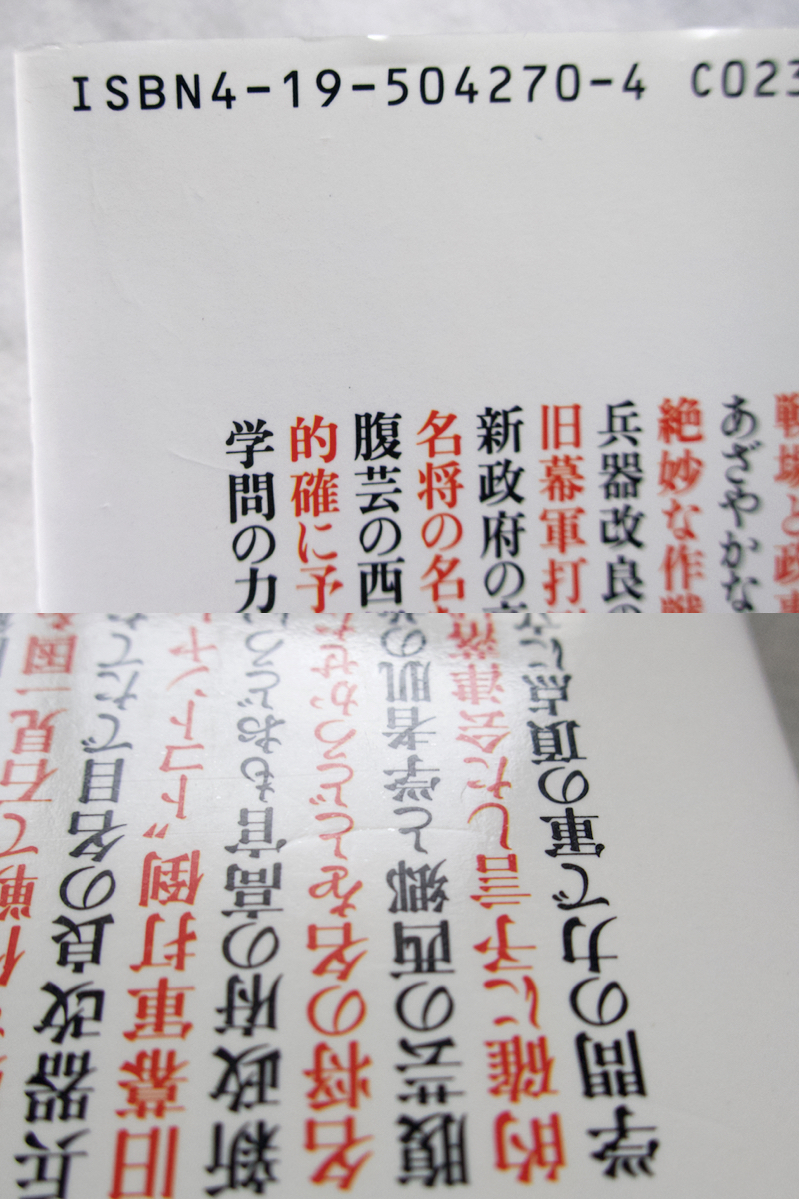 ISBN4-19-504270-4 C023
戦場と政
あざやかな
絶妙な作戦
兵器改良の
旧幕軍打
新政府の
名将の名
腹芸の西
的確に予
学問の力
作戦で石見一国を
兵器改良の名目でたて
旧幕軍打倒〝トコトンヤ
新政府の高官もおどろい
名将の名をとどろかせた
腹芸の西郷と学者肌の
的確に予言した会津落
学問の力で軍の頂点に立